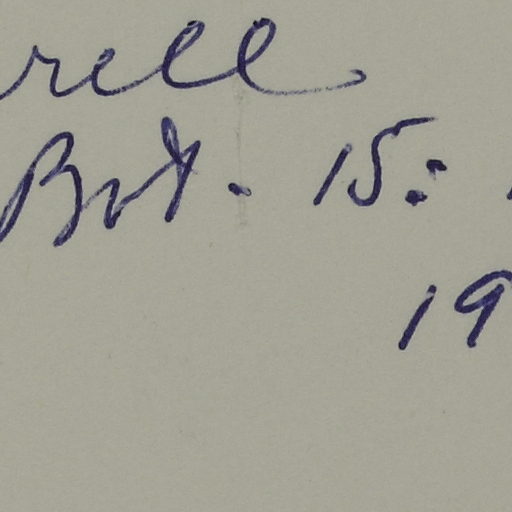 rell
Bot. 15:
19